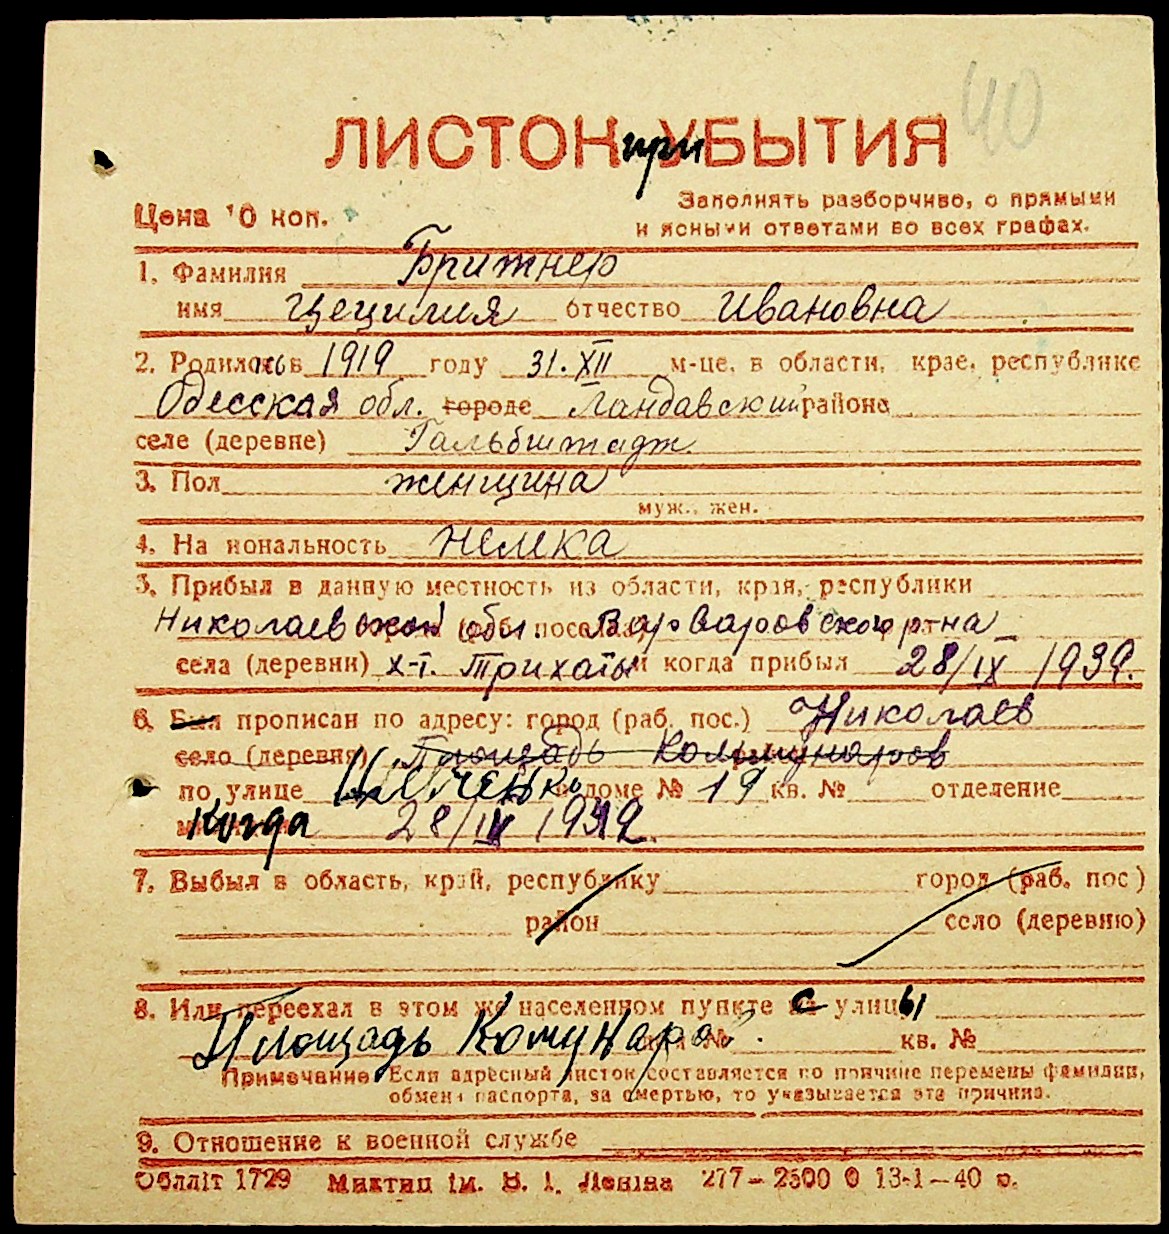 40
ЛИСТОК при УБЫТИЯ
Цена 10 коп.
Заполнять разборчиво, с прямыми
и ясными ответами во всех графах.
1. Фамилия Бритнер
имя Цецилия отчество Ивановна
2. Родилась в 1919 году 31.XII м-це, в области, крае, республике
Одесская обл. городе Ландавский района
селе (деревне) Гальбштадт
3. Пол женщина
муж., жен.
4. На иональность немка
5. Прибыл в данную местность из области, края, республики
Николаевской обл поселка Варваровского р-на
села (деревни) х-т. Трихаты и когда прибыл 28/IX 1939.
6. Был прописан по адресу: город (раб. пос.) Николаев
село (деревня) Площадь Коммунаров
по улице Шевченко доме № 19 кв. № отделение
Когда 28/IX 1939.
7. Выбыл в область, край, республику город (раб. пос)
район село (деревню)
8. Или переехал в этом же населенном пункте с улицы
Площадь Комунаров. № кв. №
Примечание Если адресный листок составляется по причине перемены фамилии,
обмена паспорта, за смертью, то указывается эта причина.
9. Отношение к военной службе
Облліт 1729 Миктип ім. В. І. Леніна 277–2500 0 13-1–40 р.